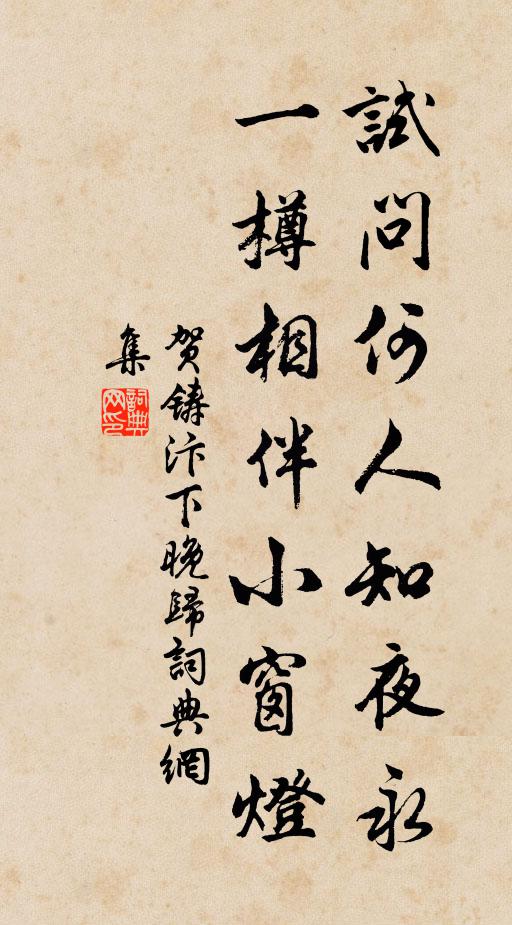 試問何人知夜永
一樽相伴小窗燈
贺鑄汴下晚歸詞典網
集
詞典
网印